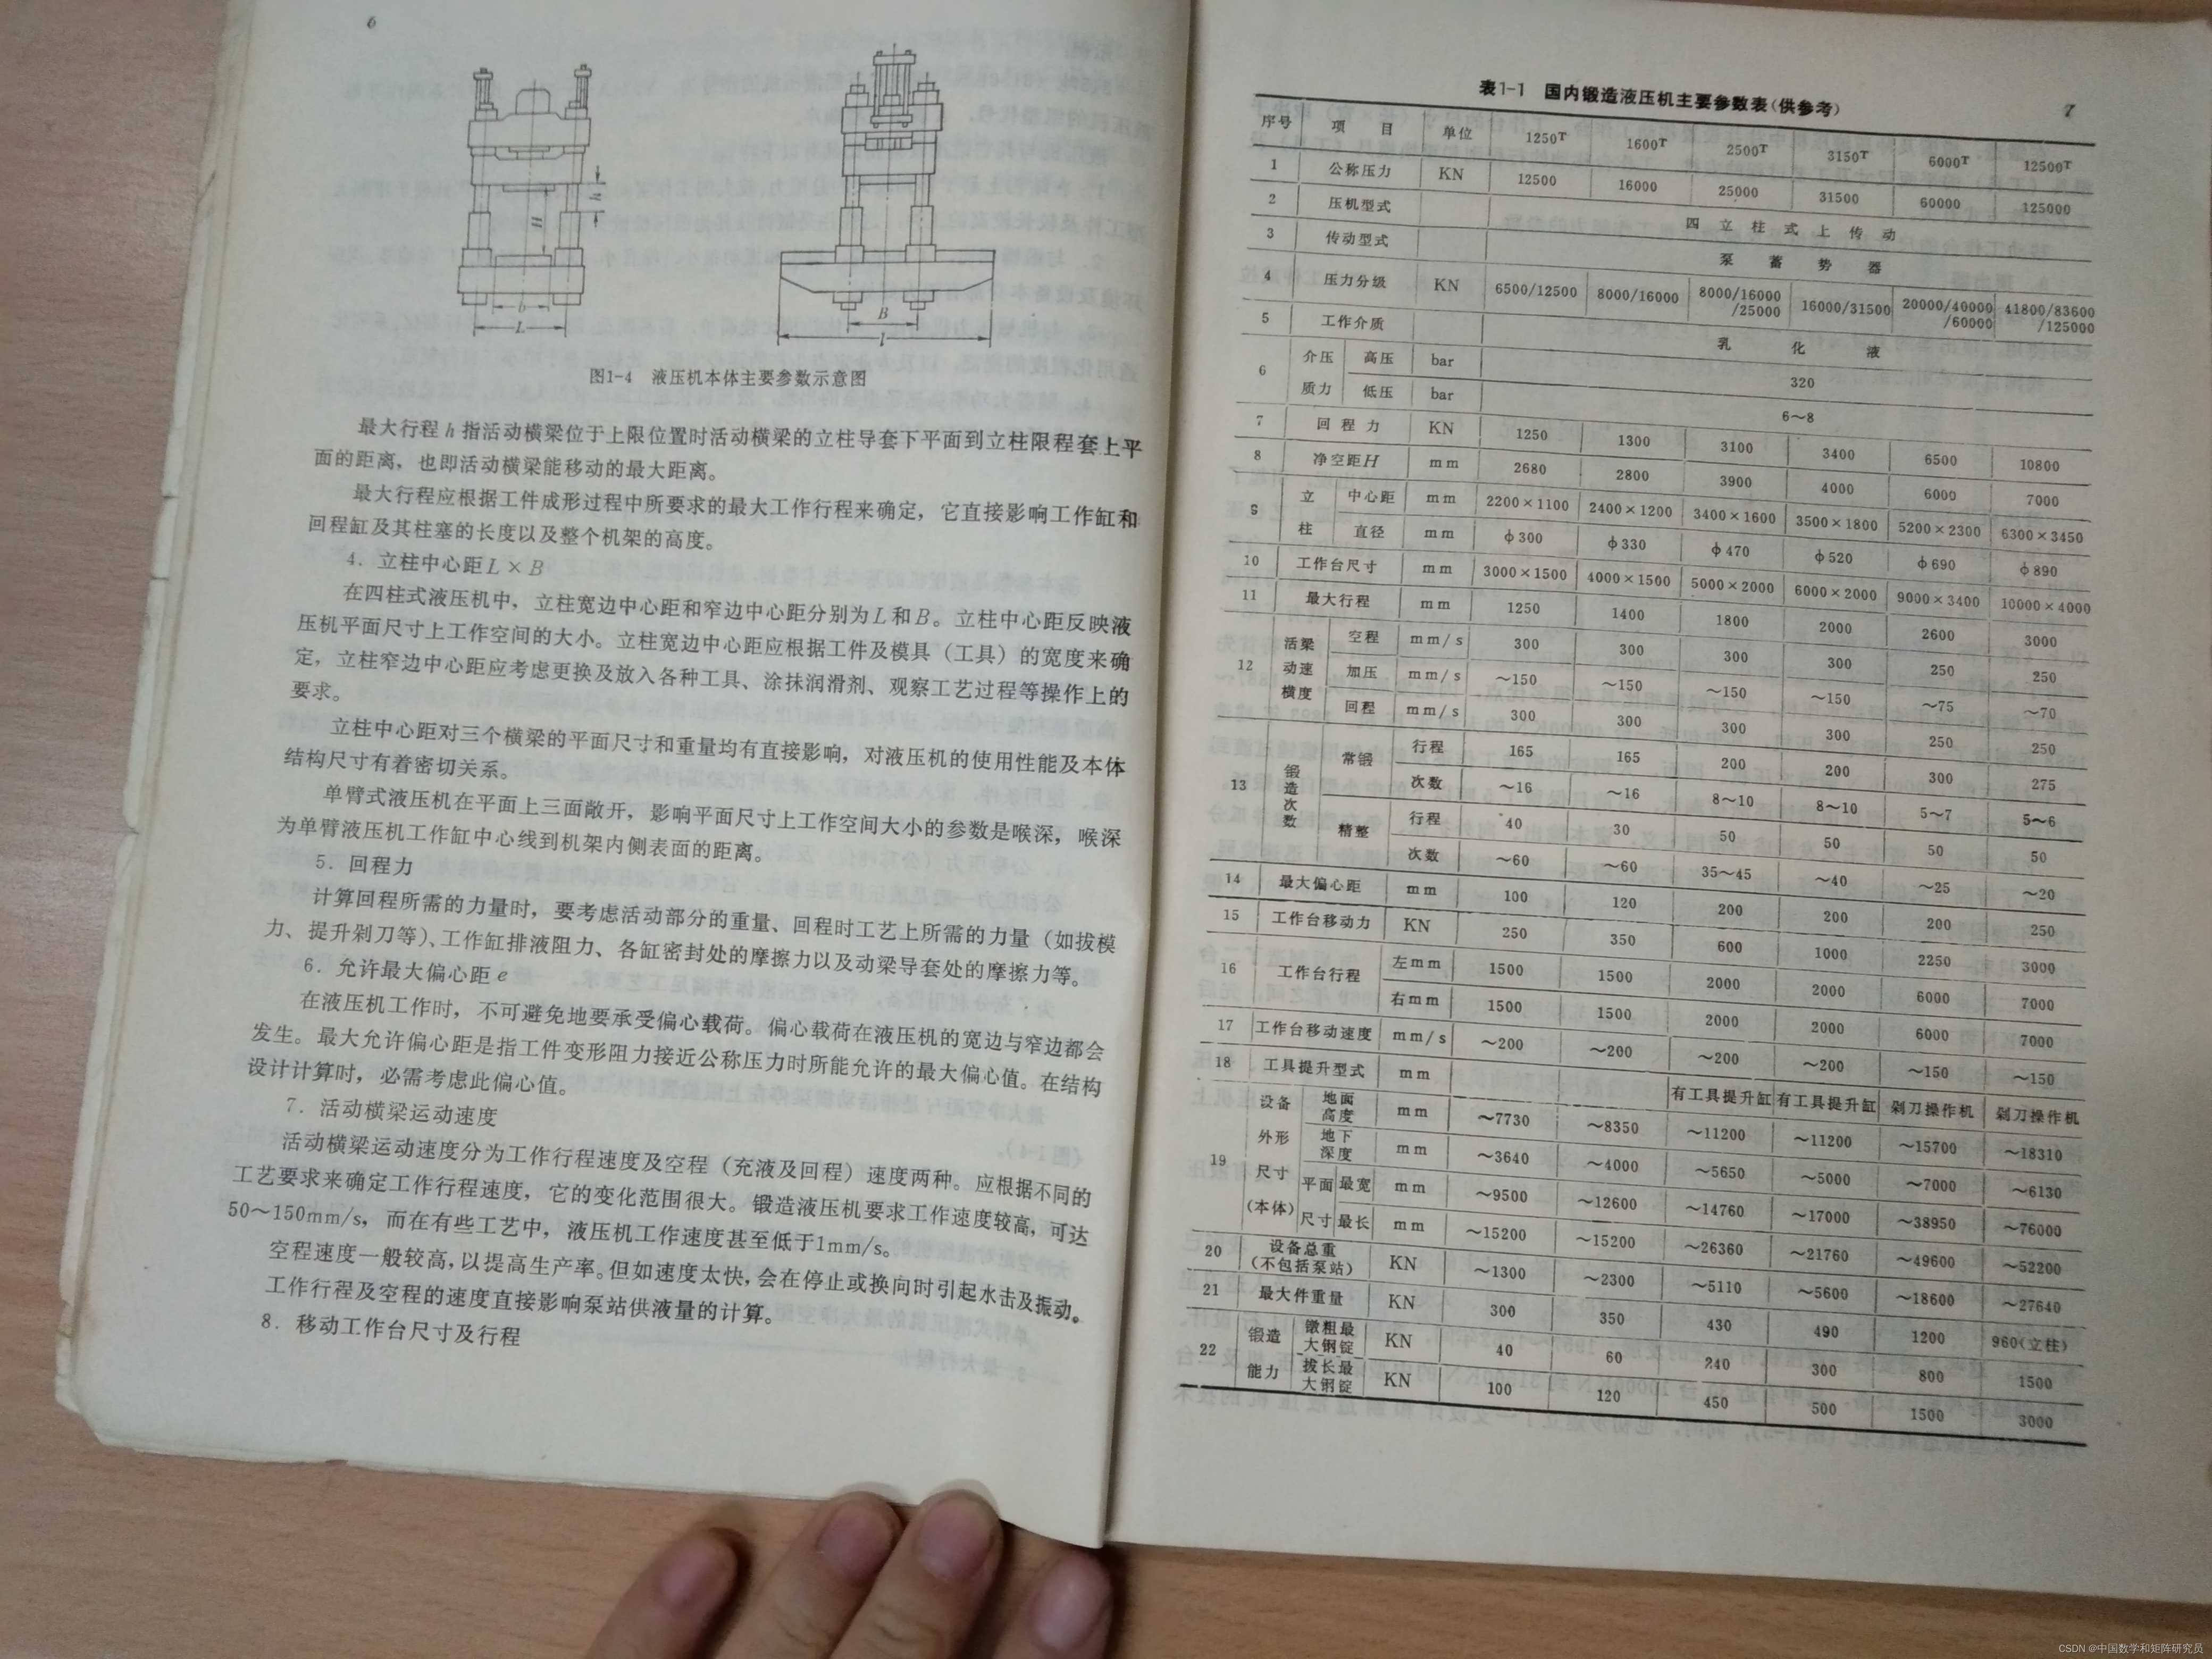 6
h
H
b
L
B
l
图1-4 液压机本体主要参数示意图
最大行程h指活动横梁位于上限位置时活动横梁的立柱导套下平面到立柱限程套上平
面的距离，也即活动横梁能移动的最大距离。
最大行程应根据工件成形过程中所要求的最大工作行程来确定，它直接影响工作缸和
回程缸及其柱塞的长度以及整个机架的高度。
4．立柱中心距L×B
在四柱式液压机中，立柱宽边中心距和窄边中心距分别为L和B。立柱中心距反映液
压机平面尺寸上工作空间的大小。立柱宽边中心距应根据工件及模具（工具）的宽度来确
定，立柱窄边中心距应考虑更换及放入各种工具、涂抹润滑剂、观察工艺过程等操作上的
要求。
立柱中心距对三个横梁的平面尺寸和重量均有直接影响，对液压机的使用性能及本体
结构尺寸有着密切关系。
单臂式液压机在平面上三面敞开，影响平面尺寸上工作空间大小的参数是喉深，喉深
为单臂液压机工作缸中心线到机架内侧表面的距离。
5．回程力
计算回程所需的力量时，要考虑活动部分的重量、回程时工艺上所需的力量（如拔模
力、提升剁刀等）、工作缸排液阻力、各缸密封处的摩擦力以及动梁导套处的摩擦力等。
6．允许最大偏心距e
在液压机工作时，不可避免地要承受偏心载荷。偏心载荷在液压机的宽边与窄边都会
发生。最大允许偏心距是指工件变形阻力接近公称压力时所能允许的最大偏心值。在结构
设计计算时，必需考虑此偏心值。
7．活动横梁运动速度
活动横梁运动速度分为工作行程速度及空程（充液及回程）速度两种。应根据不同的
工艺要求来确定工作行程速度，它的变化范围很大。锻造液压机要求工作速度较高，可达
50～150mm/s，而在有些工艺中，液压机工作速度甚至低于1mm/s。
空程速度一般较高，以提高生产率。但如速度太快，会在停止或换向时引起水击及振动。
工作行程及空程的速度直接影响泵站供液量的计算。
8．移动工作台尺寸及行程
7
表1-1 国内锻造液压机主要参数表（供参考）
序号 项目 单位 1250T 1600T 2500T 3150T 6000T 12500T
1 公称压力 KN 12500 16000 25000 31500 60000 125000
2 压机型式 四立柱式上传动
3 传动型式 泵蓄势器
4 压力分级 KN 6500/12500 8000/16000 8000/16000/25000 16000/31500 20000/40000/60000 41800/83600/125000
5 工作介质 乳化液
6 介质压力 高压 bar 320
低压 bar 6～8
7 回程力 KN 1250 1300 3100 3400 6500 10800
8 净空距H mm 2680 2800 3900 4000 6000 7000
9 立柱 中心距 mm 2200×1100 2400×1200 3400×1600 3500×1800 5200×2300 6300×3450
直径 mm φ300 φ330 φ470 φ520 φ690 φ890
10 工作台尺寸 mm 3000×1500 4000×1500 5000×2000 6000×2000 9000×3400 10000×4000
11 最大行程 mm 1250 1400 1800 2000 2600 3000
12 活动横梁速度 空程 mm/s 300 300 300 300 250 250
加压 mm/s ～150 ～150 ～150 ～150 ～75 ～70
回程 mm/s 300 300 300 300 250 250
13 锻造次数 常锻 行程 165 165 200 200 300 275
次数 ～16 ～16 8～10 8～10 5～7 5～6
精整 行程 40 30 50 50 50 50
次数 ～60 ～60 35～45 ～40 ～25 ～20
14 最大偏心距 mm 100 120 200 200 200 250
15 工作台移动力 KN 250 350 600 1000 2250 3000
16 工作台行程 左mm 1500 1500 2000 2000 6000 7000
右mm 1500 1500 2000 2000 6000 7000
17 工作台移动速度 mm/s ～200 ～200 ～200 ～200 ～150 ～150
18 工具提升型式 mm 有工具提升缸 有工具提升缸 剁刀操作机 剁刀操作机
19 设备外形尺寸（本体） 地面高度 mm ～7730 ～8350 ～11200 ～11200 ～15700 ～18310
地下深度 mm ～3640 ～4000 ～5650 ～5000 ～7000 ～6130
平面尺寸 最宽 mm ～9500 ～12600 ～14760 ～17000 ～38950 ～76000
最长 mm ～15200 ～15200 ～26360 ～21760 ～49600 ～52200
20 设备总重（不包括泵站） KN ～1300 ～2300 ～5110 ～5600 ～18600 ～27640
21 最大件重量 KN 300 350 430 490 1200 960（立柱）
22 锻造能力 镦粗最大钢锭 KN 40 60 240 300 800 1500
拔长最大钢锭 KN 100 120 450 500 1500 3000
CSDN @中国数学和矩阵研究员